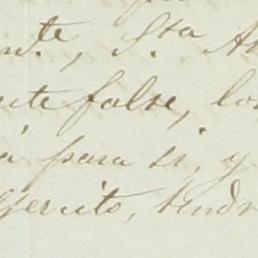 te, Sta A
te false, lo
a para si, y
jercito, tendr